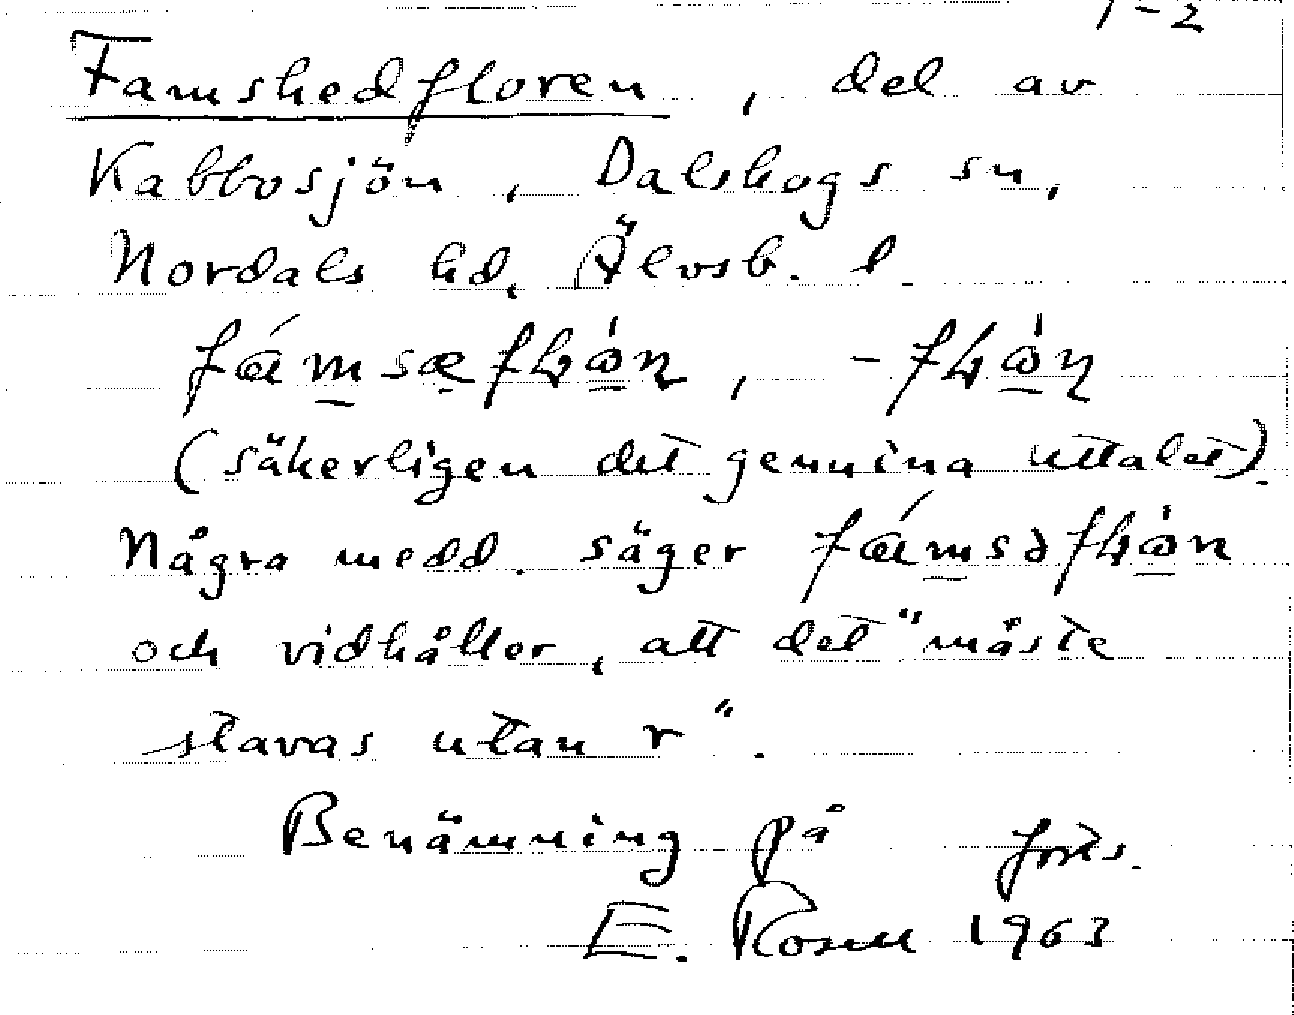 1-2
Famshedfloren, del av
Kabbosjön, Dalskogs sn,
Nordals hd, Älvsb. l.
(säkerligen det genuina uttalet).
Några medd. säger
och vidhåller, att det "måste
stavas utan r".
Benämning på forts.
E. Rosell 1963